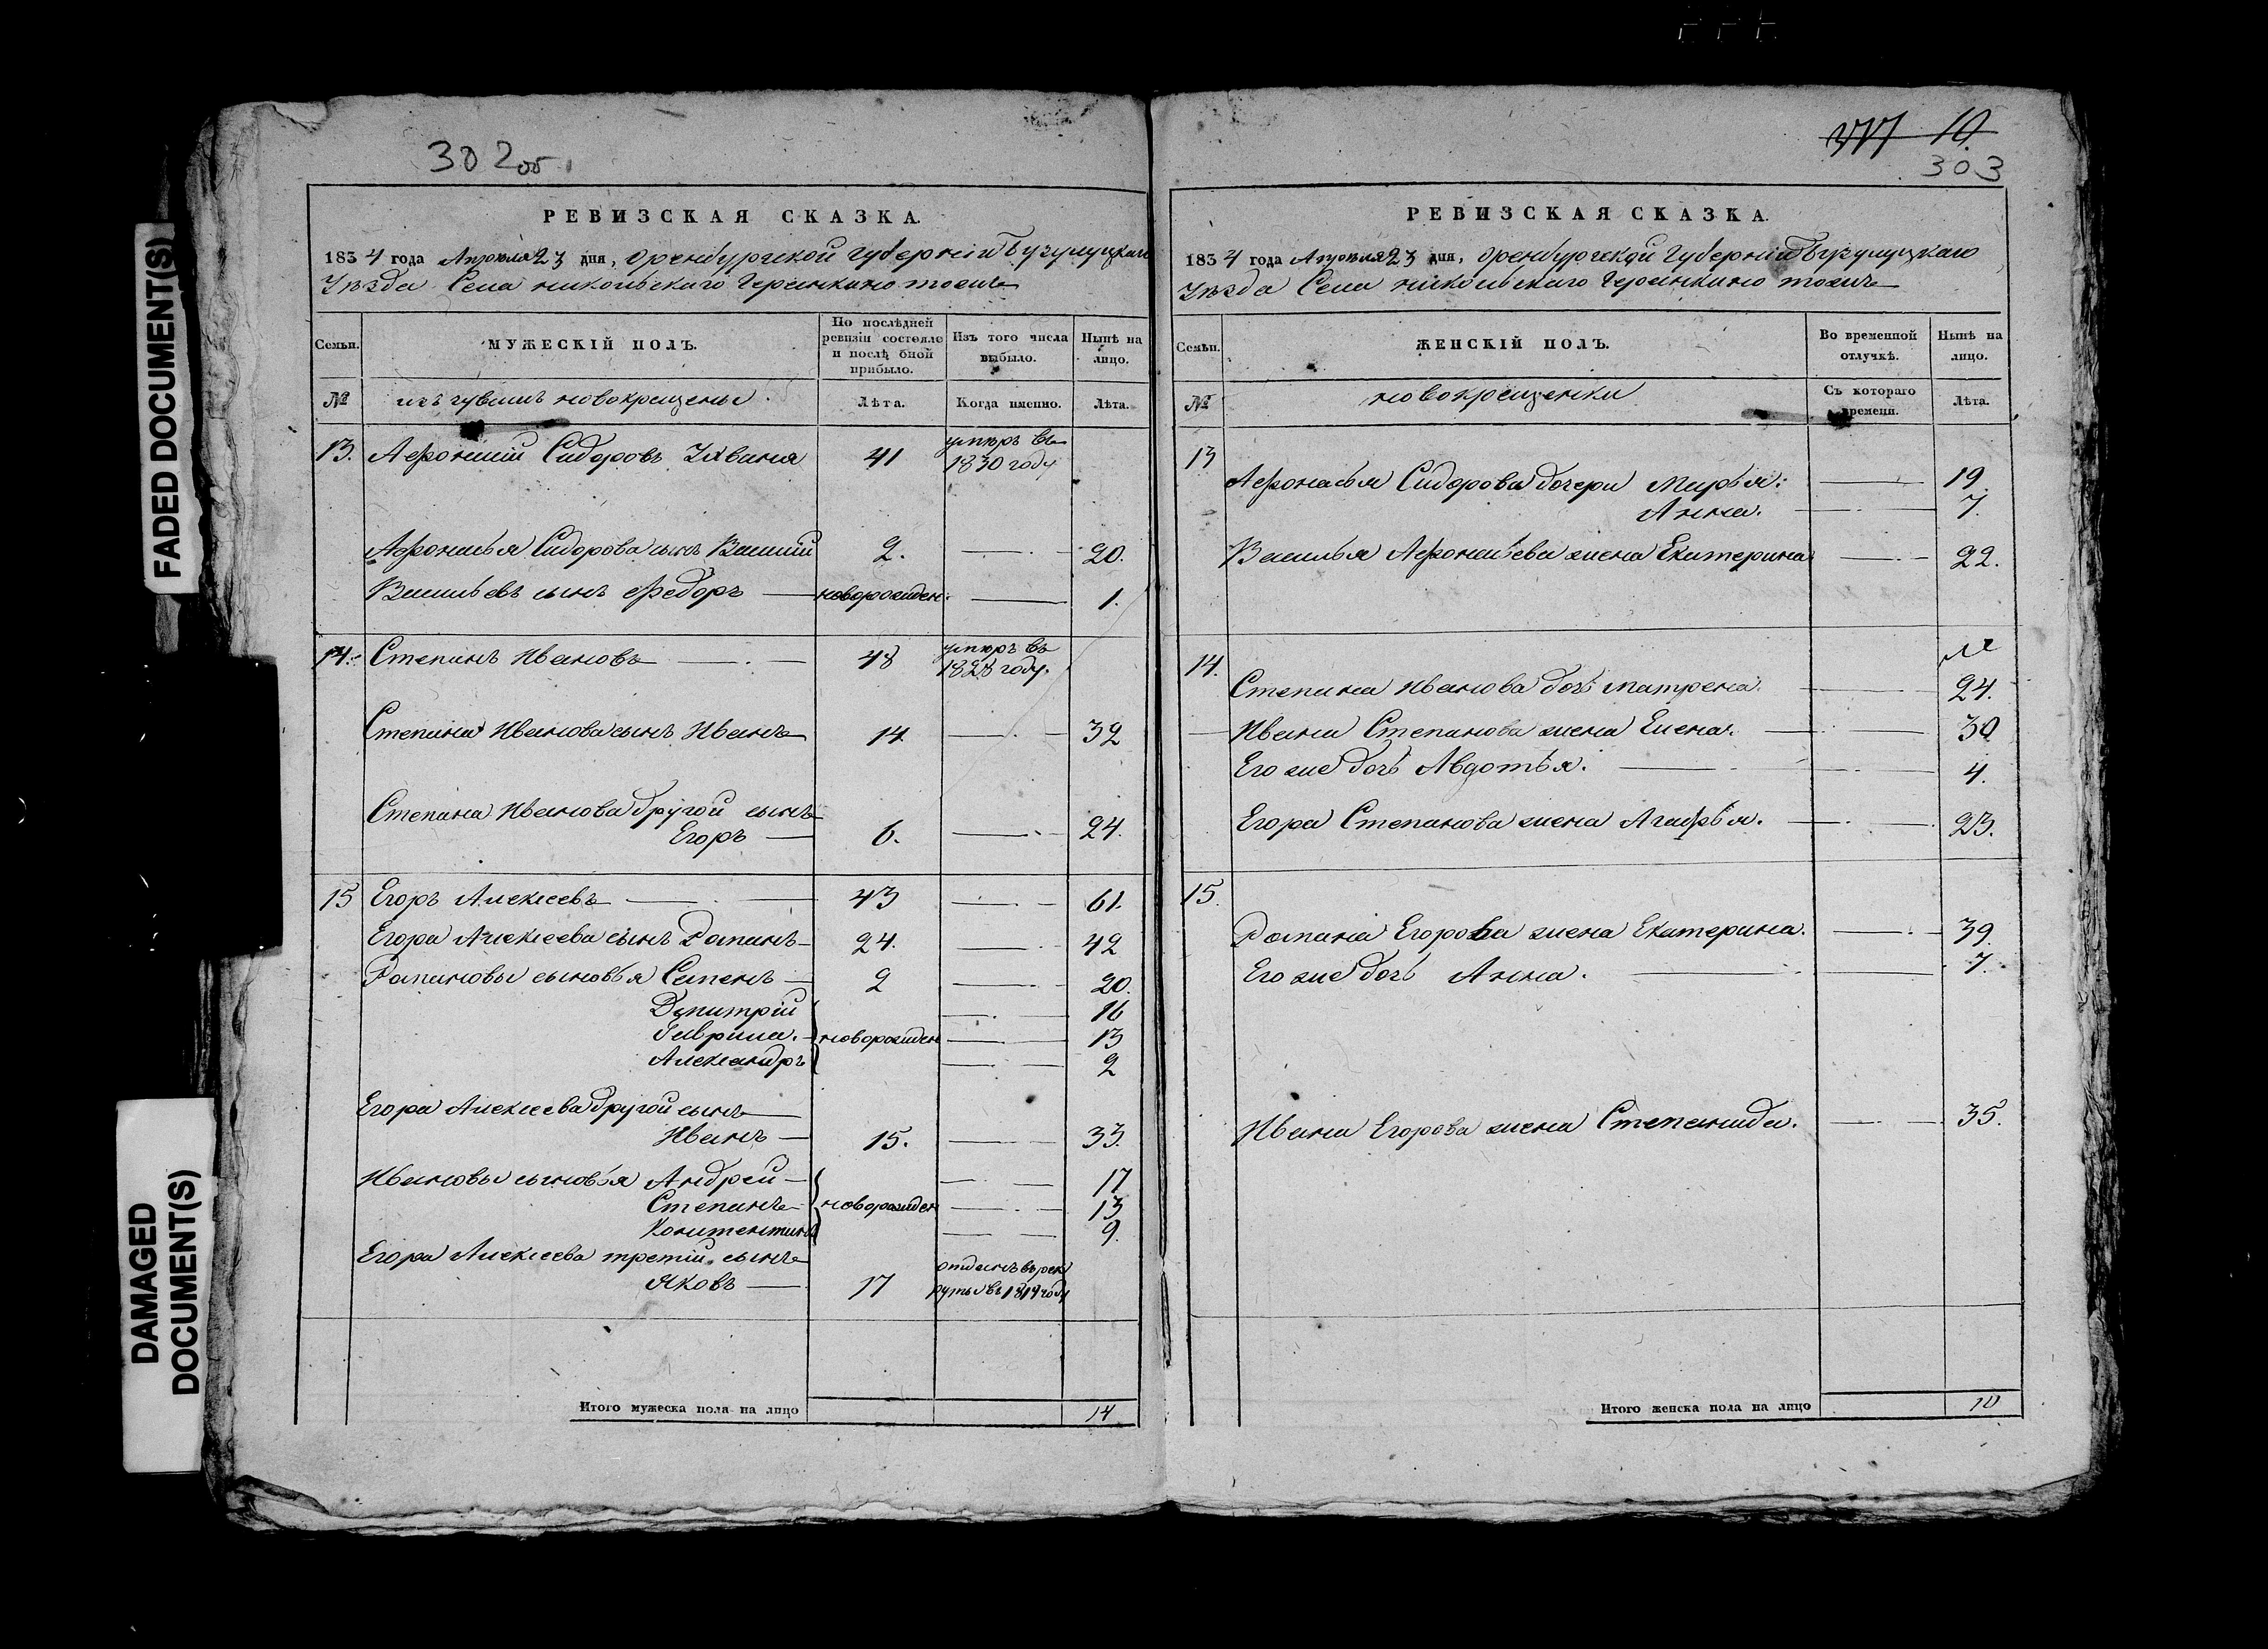 FADED DOCUMENT(S)
DAMAGED
DOCUMENT(S)
302об
РЕВИЗСКАЯ СКАЗКА.
1834 года Апреля 23 дня, Оренбургской Губерніи Бузулуцкаго
Уѣзда Села Никольскаго Герянкино тожъ
Семьи.
МУЖЕСКІЙ ПОЛЪ.
По послѣдней ревизіи состояло и послѣ оной прибыло.
Изъ того числа выбыло.
Нынѣ на лицо.
№
изъ чувашъ новокрещены.
Лѣта.
Когда именно.
Лѣта.
13. Афонасий Сидоровъ 41 умѣръ въ 1830 году
Афонасья Сидорова сынъ Василий 2. 20.
Васильевъ сынъ Федоръ новорожден. 1.
14. Степанъ Ивановъ 48 умѣръ въ 1828 году.
Степана Иванова сынъ Иванъ 14 32
Степана Иванова другой сынъ
Егоръ 6. 24.
15 Егоръ Алексеевъ 43 61.
Егора Алексеева сынъ Романъ 24. 42
Романовы сыновья Семенъ 2 20.
Дмитрій 16
Гаврила. новорожден 13
Александръ 2
Егора Алексеева другой сынъ
Иванъ 15. 33.
Ивановы сыновья Андрей 17
Степанъ новорожден 13
Констентинъ 9.
Егора Алексеева третій сынъ
Яковъ 17 отданъ въ рекруты въ 1819 году
Итого мужеска пола на лицо 14
10.
303
РЕВИЗСКАЯ СКАЗКА.
1834 года Апреля 23 дня, Оренбургской Губерніи Бузулуцкаго
Уѣзда Села Никольскаго Герянкино тожъ
Семьи.
ЖЕНСКІЙ ПОЛЪ.
Во временной отлучкѣ.
Нынѣ на лицо.
№
новокрещенки
Съ котораго времени.
Лѣта.
13
Афонасья Сидорова дочери Марья: 19
Анна. 7.
Василья Афонасьева жена Екатерина 22.
14.
Степана Иванова дочь Матрена. 24.
Ивана Степанова жена Елена. 30
Его же дочь Авдотья. 4.
Егора Степанова жена Агафья. 23.
15.
Романа Егорова жена Екатерина. 39.
Его же дочь Анна. 7.
Ивана Егорова жена Степанида. 35.
Итого женска пола на лицо 10